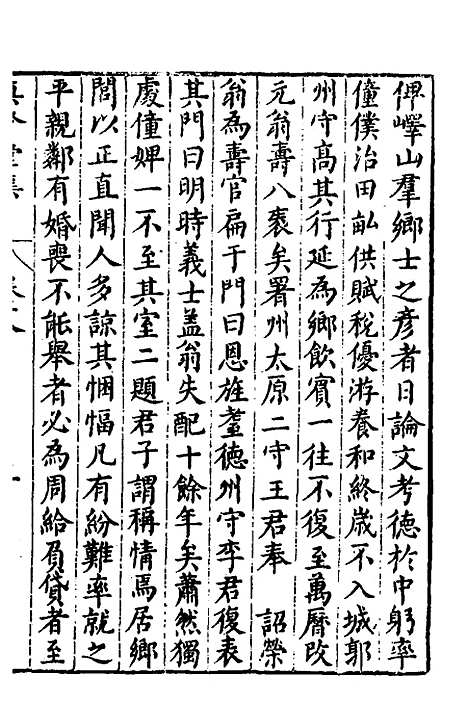 俾嶧山羣鄉士之彦者日論文考德於中躬率
僮僕治田畝供賦稅優游養和終歲不入城郭
州守高其行延為鄉飲賓一往不復至萬曆改
元翁壽八袠矣署州太原二守王君奉　詔榮
翁為壽官扁于門曰恩旌耋德州守李君復表
其門曰明時義士盖翁失配十餘年矣蕭然獨
處僮婢一不至其室二題君子謂稱情焉居鄉
閭以正直聞人多諒其悃愊凡有紛難率就之
平親鄰有婚喪不能舉者必為周給負貸者至